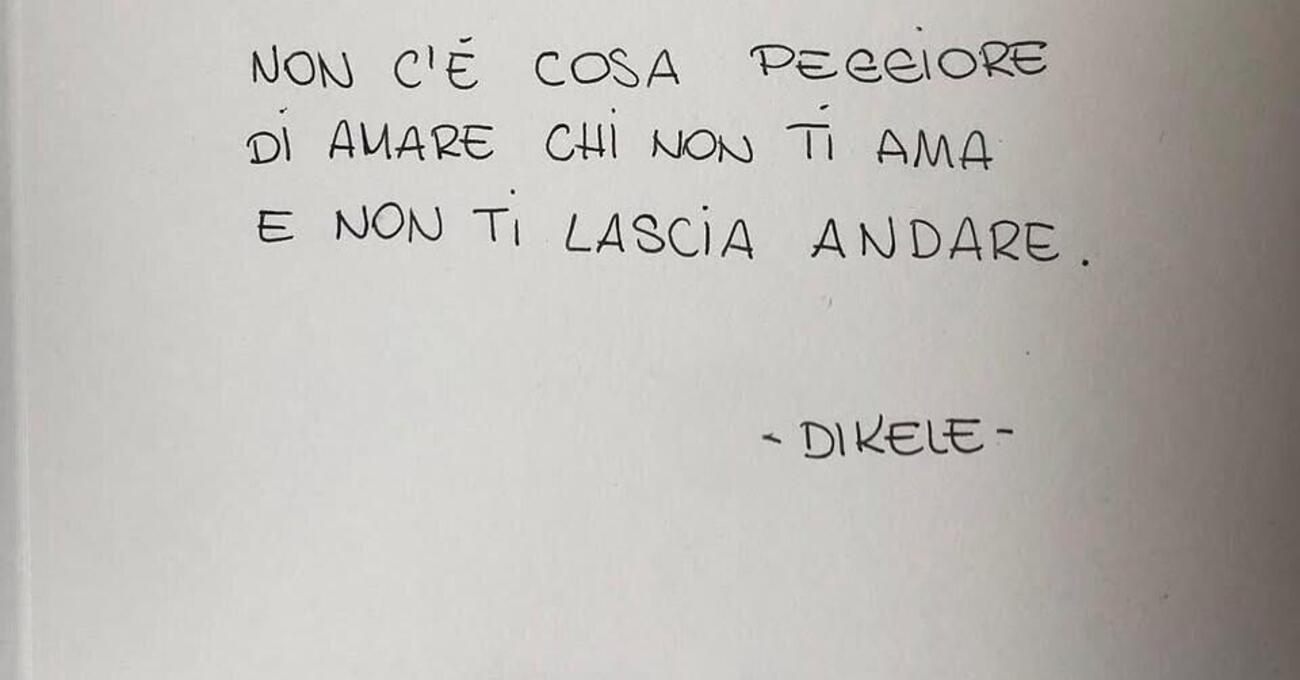 NON C'É COSA PEGGIORE
DI AMARE CHI NON TI AMA
E NON TI LASCIA ANDARE.
- DIKELE -